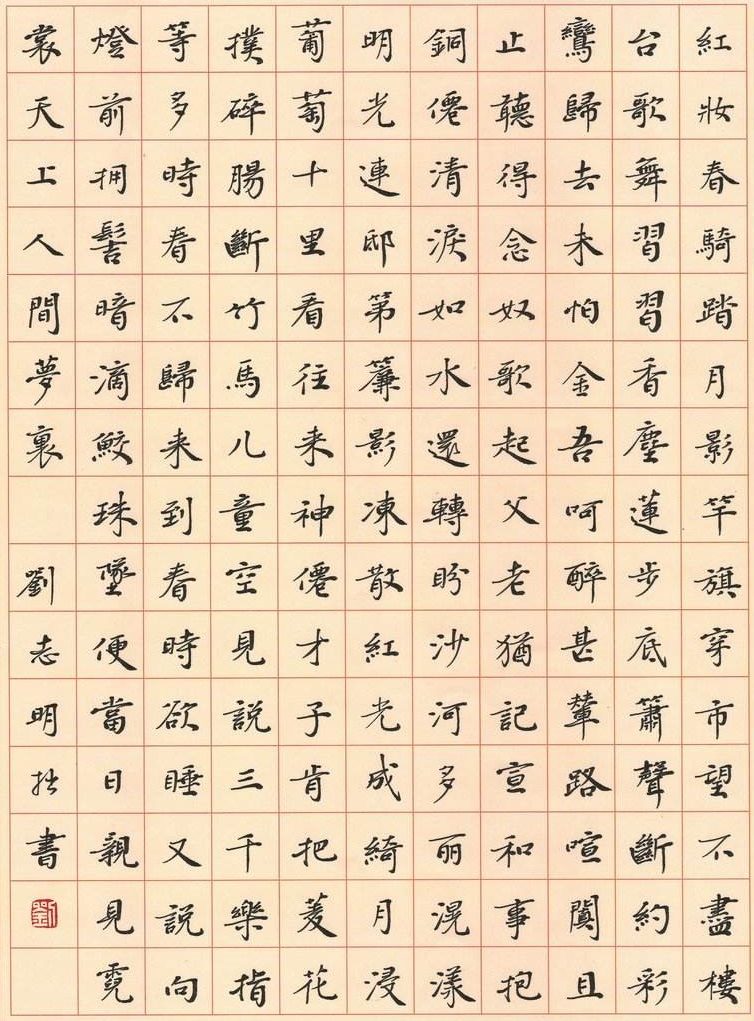 紅妝春騎踏月影竿旗穿市望不盡樓
台歌舞習習香塵蓮步底簫聲斷約彩
鸞歸去未怕金吾呵醉甚輦路喧闐且
止聽得念奴歌起父老猶記宣和事抱
銅僊清淚如水還轉盼沙河多丽滉漾
明光連邸第簾影凍散紅光成綺月浸
葡萄十里看往来神僊才子肯把菱花
撲碎腸斷竹馬儿童空見說三千樂指
等多時春不歸来到春時欲睡又說向
燈前拥髻暗滴鮫珠墜便當日親見霓
裳天上人間夢裏 劉志明拙書
劉